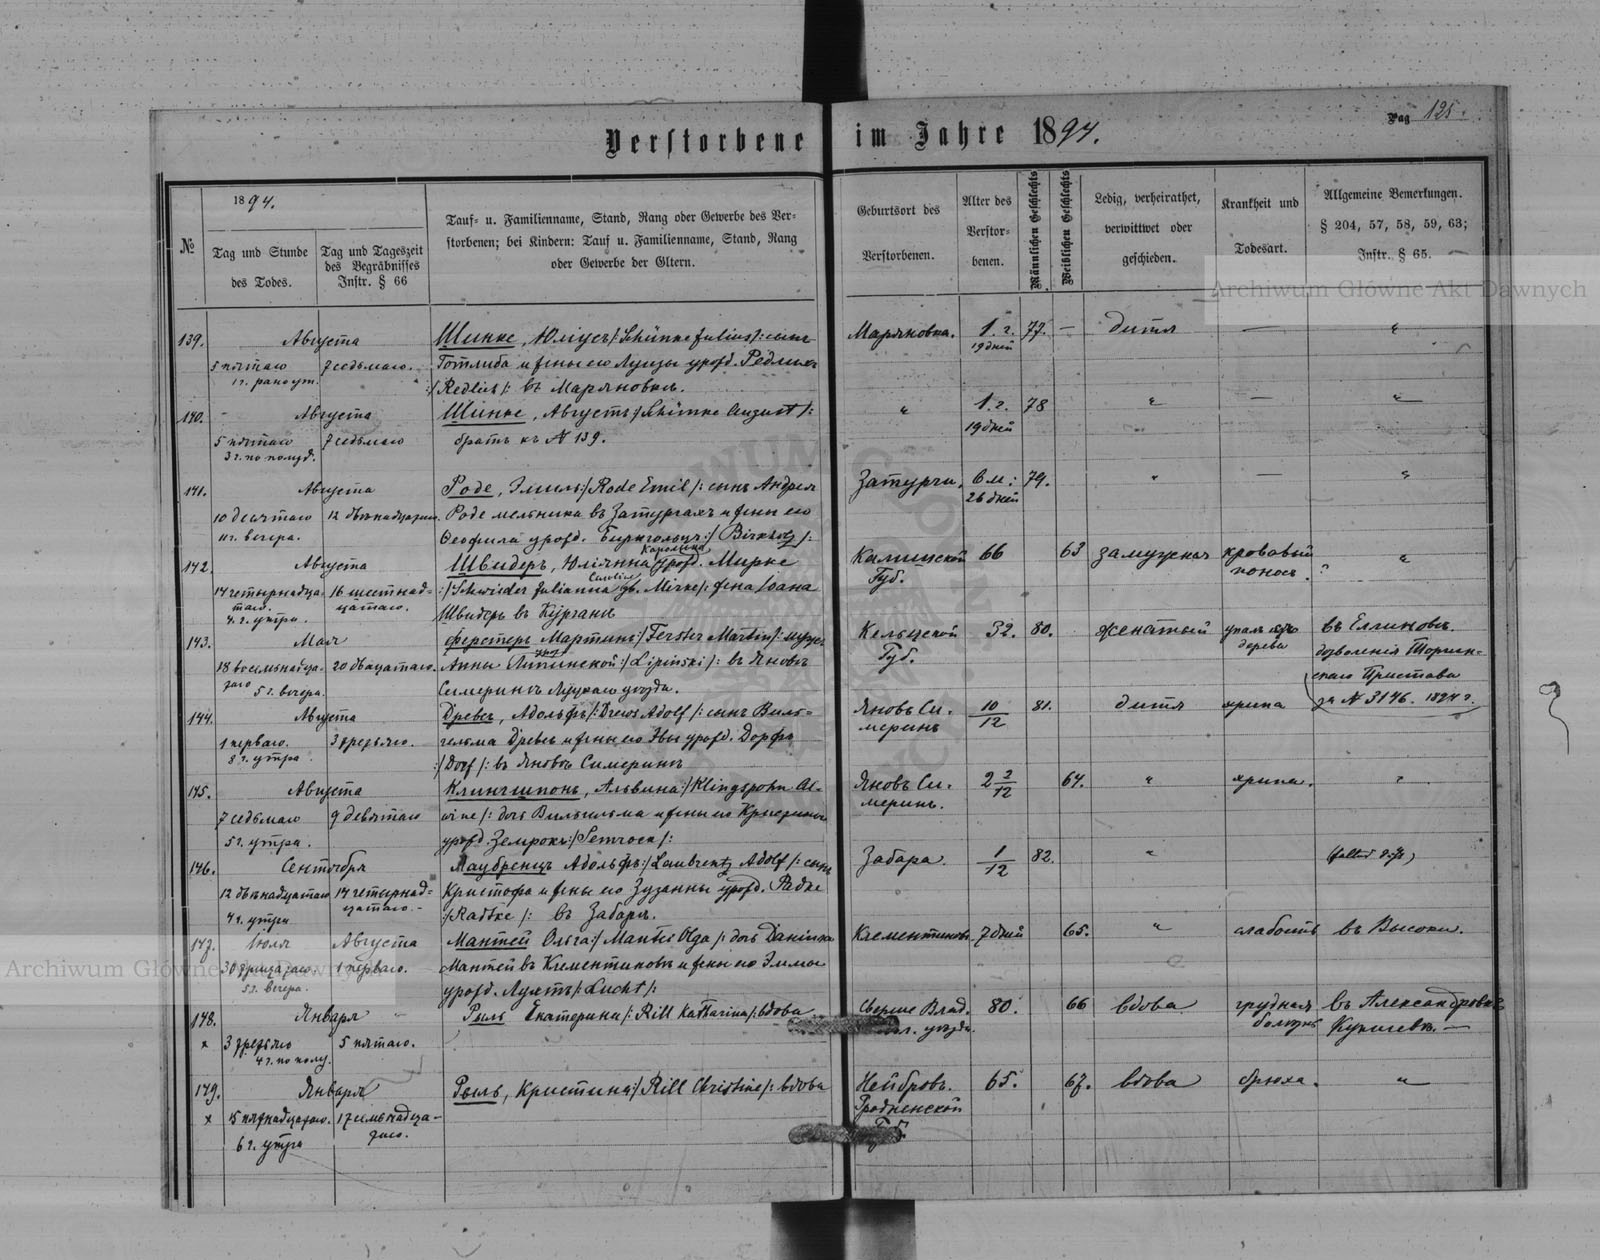 Pag 125.
Verstorbene im Jahre 1894.
№
1894.
Tag und Stunde
des Todes.
Tag und Tageszeit
des Begräbnisses
Instr. § 66
Tauf- u. Familienname, Stand, Rang oder Gewerbe des Ver-
storbenen; bei Kindern: Tauf u. Familienname, Stand, Rang
oder Gewerbe der Eltern.
Geburtsort des
Verstorbenen.
Alter des
Verstor-
benen.
Männlichen Geschlechts
Weiblichen Geschlechts
Ledig, verheirathet,
verwittwet oder
geschieden.
Krankheit und
Todesart.
Allgemeine Bemerkungen.
§ 204, 57, 58, 59, 63;
Instr. § 65.
Archiwum Główne Akt Dawnych
139. Августа Шинке, Юліусъ /: Schünke Julius /: сынъ Маряновка. 1 г. 77. — дитя — "
5 пятаго 7 седьмаго. Готлиба и жены его Луизы урожд. Редлихъ 19 дней
1 г. рано ут. :/ Redlich /: въ Маряновке.
140. Августа Шинке, Августъ :/ Schünke August /: " 1 г. 78 " — "
5 пятаго 7 седьмаго братъ къ N 139. 19 дней
3 г. по полуд.
141. Августа Роде, Эмиль :/ Rode Emil /: сынъ Андрея Затурчи. 6 м: 79. " — "
10 десятаго 12 двѣнадцатаго. Роде мельника въ Затурцахъ и жены его 26 дней
11 г. вечера. Теофила урожд. Биркгольцъ :/ Birkholz /:
142. Августа Швидеръ, Юліянна Каролина урожд. Мирке Калишской 66 63 замужняя кровавый "
14 четырнадца- 16 шестнад- :/ Schwieder Julianna Caroline gb. Mirke /: жена Іоана Губ. поносъ.
таго. цатаго. Швидеръ въ Курганъ
4 г. утра.
143. Мая Ферстеръ Мартинъ :/ Ferster Martin /: мужъ Кельцской 32. 80. женатый упалъ съ въ Еллиновъ.
18 восемьнадца- 20 двадцатаго. Анны Липинской :/ Lipinski /: въ Яновъ Губ. дерева дозволенія Торчин-
таго 5 г. вечера. Симеринъ Луцкаго уѣзда. скаго Пристава
за N 3146. 1894 г.
144. Августа Древсъ, Адольфъ /: Drews Adolf /: сынъ Виль- Яновъ Си- 10/12 81. дитя хрипа
1 перваго. 3 третьяго. гельма Древсъ и жены его Эвы урожд. Дорфъ меринъ
8 г. утра :/ Dorf /: въ Яновъ Симеринъ
145. Августа Клингшпонъ, Альвина :/ Klingspohn Al- Яновъ Си- 2 2/12 64. " хрипа.
7 седьмаго 9 девятаго wine /: дочь Вильгельма и жены его меринъ.
5 г. утра. урожд. Земрокъ :/ Semrock /:
146. Сентября Лаубренцъ Адольфъ :/ Laubrentz Adolf /: сынъ Забара 1/12 82. "
12 двѣнадцатаго 14 четырнад- Кристофа и жены его Зузанны урожд. Радке
4 г. утра цатаго. :/ Radtke /: въ Забаръ.
147. Іюля Августа Мантей Ольга :/ Mantei Olga /: дочь Даніила Клементиновъ 7 дней 65. " слабость въ Высоки.
30 тридцатаго 1 перваго. Мантей въ Клементиновъ и жены его Эммы
5 г. вечера. урожд. Лухтъ /: Lucht /:
148. Января Рыль Екатерина /: Rill Katharina /: вдова 80. 66 вдова грудная въ Александровкѣ
× 3 третьяго 5 пятаго. уѣзда. болѣзнь
4 г. по полу.
149. Января Рыль, Кристина :/ Rill Christine /: вдова Нейбровъ. 65. 67. вдова брюха. "
× 15 пятнадцатаго. 17 семьнадца- Гродненской
6 г. утра таго. Губ.
Archiwum Główne Akt Dawnych